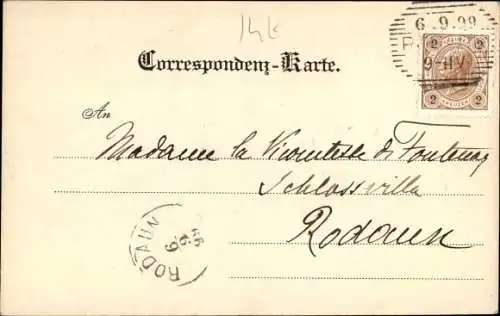 14k
6.9.99
9-11V
2 2
KREUZER
2 2
Correspondenz-Karte.
An
Madame la Vicomtesse de Fontenay
Schlossvilla
Rodaun
RODAUN
6 9
99